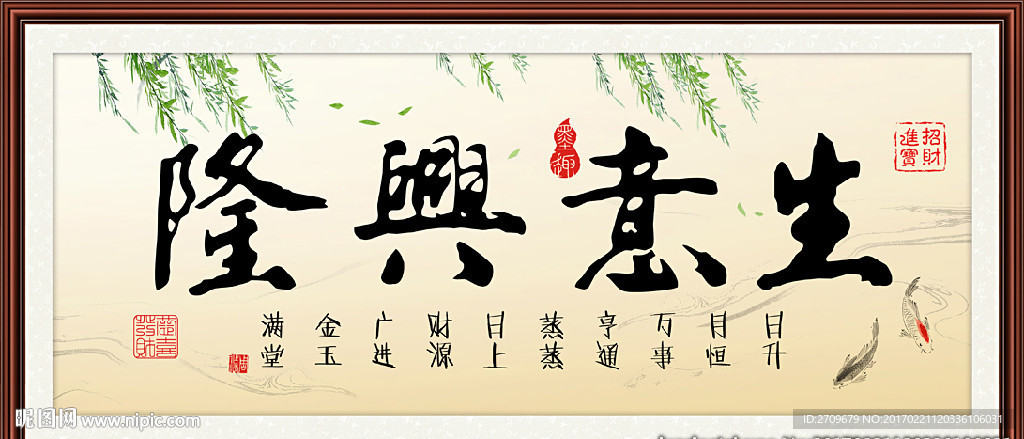 生意興隆
墨趣
招財進寶
日升月恒万事亨通蒸蒸日上财源广进金玉满堂
昵图网 www.nipic.com
ID:2709679 NO:20170221120336106031